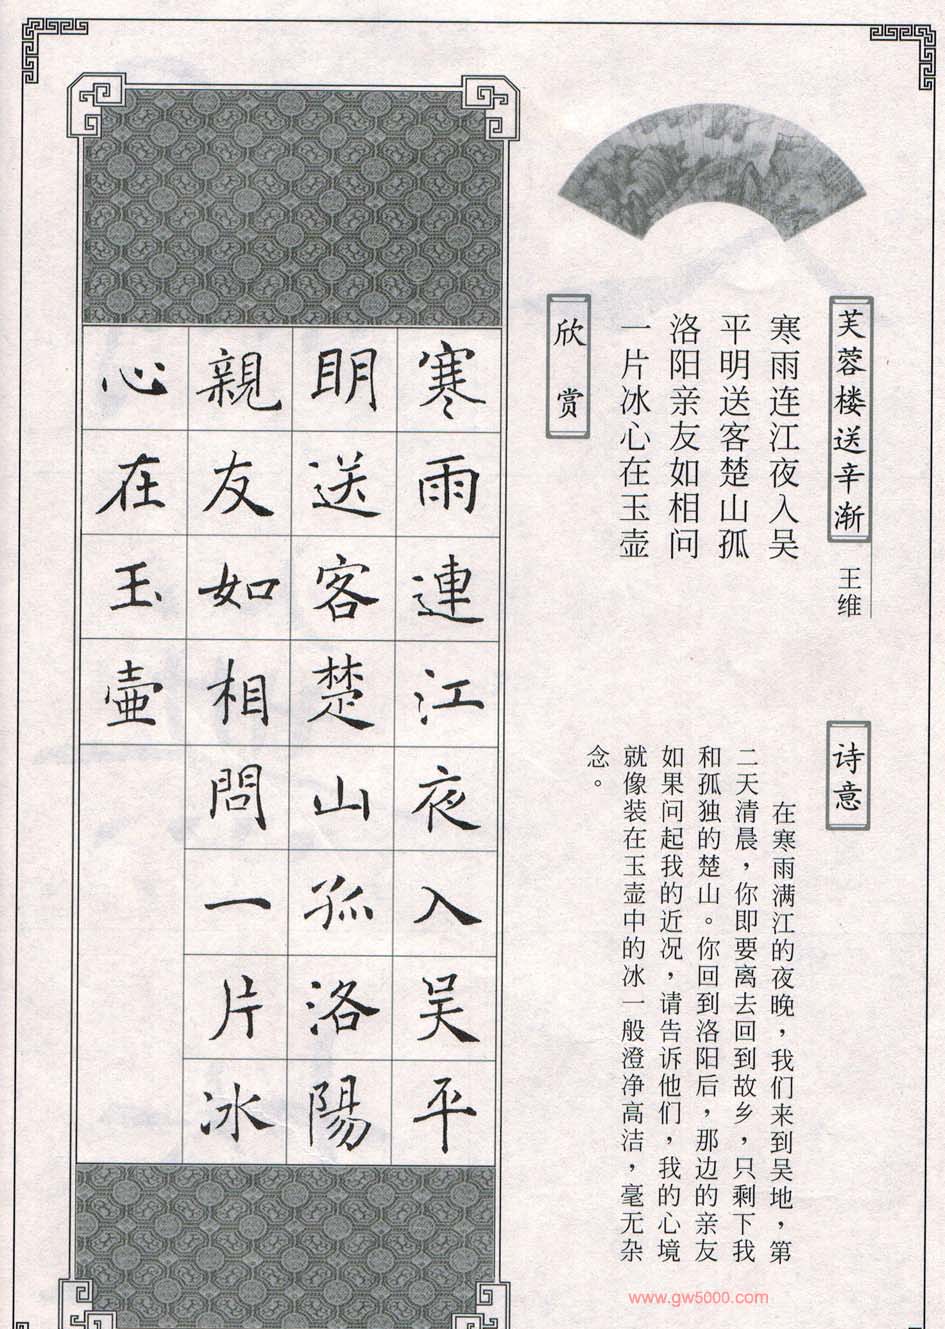 芙蓉楼送辛渐
王维
寒雨连江夜入吴
平明送客楚山孤
洛阳亲友如相问
一片冰心在玉壶
诗意
在寒雨满江的夜晚，我们来到吴地，第
二天清晨，你即要离去回到故乡，只剩下我
和孤独的楚山。你回到洛阳后，那边的亲友
如果问起我的近况，请告诉他们，我的心境
就像装在玉壶中的冰一般澄净高洁，毫无杂
念。
欣赏
寒雨連江夜入吴平
明送客楚山孤洛陽
親友如相問一片冰
心在玉壺
www.gw5000.com